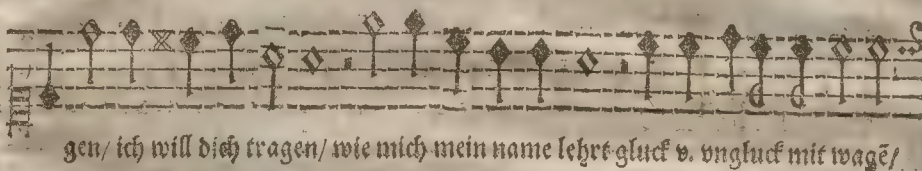 gen/ ich will dich tragen/ wie mich mein name lehrt gluck v. vngluck mit wagē/